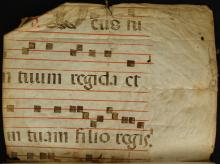 cus tu
m tuum regi da et
tiam tuam filio regis